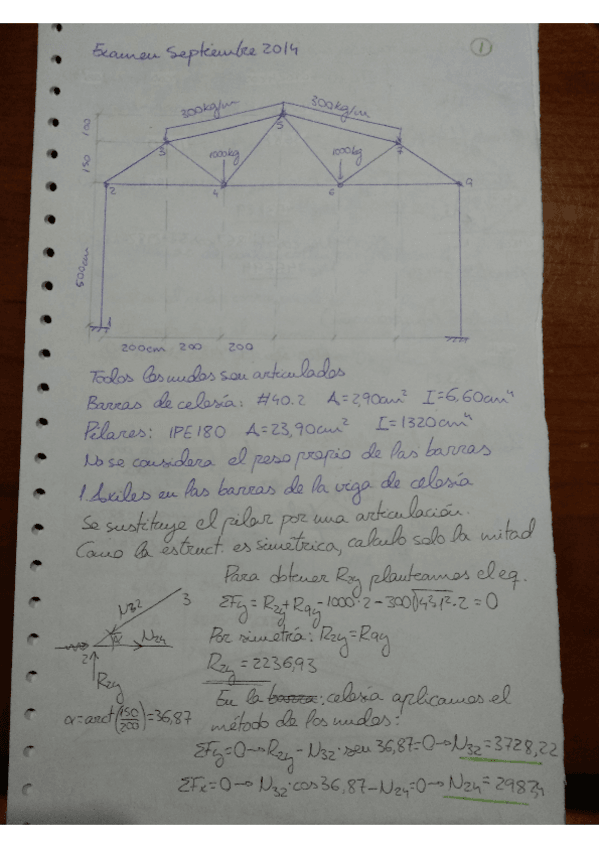 Examen Septiembre 2014
1
300kg/m 300kg/m
100
150
500cm
1000kg 1000kg
2 3 4 5 6 7 9
1
200cm 200 200
Todos los nudos son articulados
Barras de celosía: #40.2 A=2,90cm² I=6,60cm⁴
Pilares: IPE180 A=23,90cm² I=1320cm⁴
No se considera el peso propio de las barras
1. Axiles en las barras de la viga de celosía
Se sustituye el pilar por una articulación.
Como la estruct. es simétrica, calculo solo la mitad
Para obtener R2y planteamos el eq.
ΣFy = R2y + R9y - 1000·2 - 300√(4²+1²)·2 = 0
Por simetría: R2y = R9y
R2y = 2236,93
N32 3
α N24
2
R2y
α = arct(150/200) = 36,87
En la barra: celosía aplicamos el
método de los nudos:
ΣFy=0→R2y - N32·sen 36,87=0→N32=3728,22
ΣFx=0→N32·cos36,87-N24=0→N24=